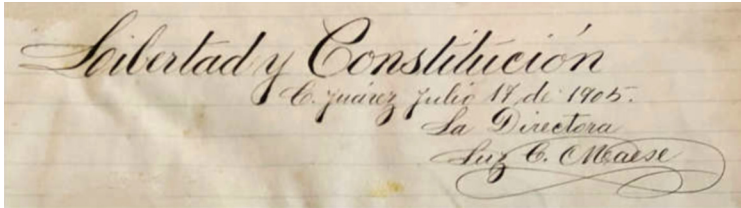 Libertad y Constitución
C. Juárez Julio 17, de 1905.
La Directora
Luz C. Maese